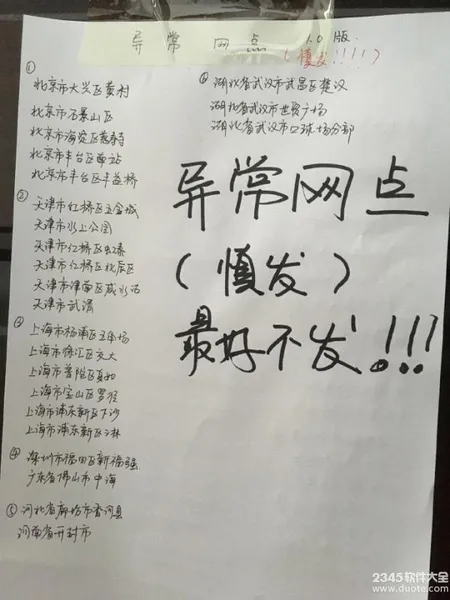 异常网点 1.0版
（慎发！！！！）
①
北京市大兴区黄村
北京市石景山区
北京市海淀区惠新
北京市丰台区西站
北京市丰台区丰益桥
②
天津市红桥区五金城
天津市水上公园
天津市红桥区虹泰
天津市红桥区北辰区
天津市津南区咸水沽
天津市武清
③
上海市杨浦区五角场
上海市徐汇区交大
上海市普陀区真如
上海市宝山区罗泾
上海市浦东新区下沙
上海市浦东新区三林
④
深圳市福田区新福强
广东省佛山市中海
⑤ 河北省廊坊市香河县
河南省开封市
⑥ 湖北省武汉市武昌区楚汉
湖北省武汉市世贸广场
湖北省武汉市口球场分部
异常网点
（慎发）
最好不发！！！
2345软件大全
www.duote.com